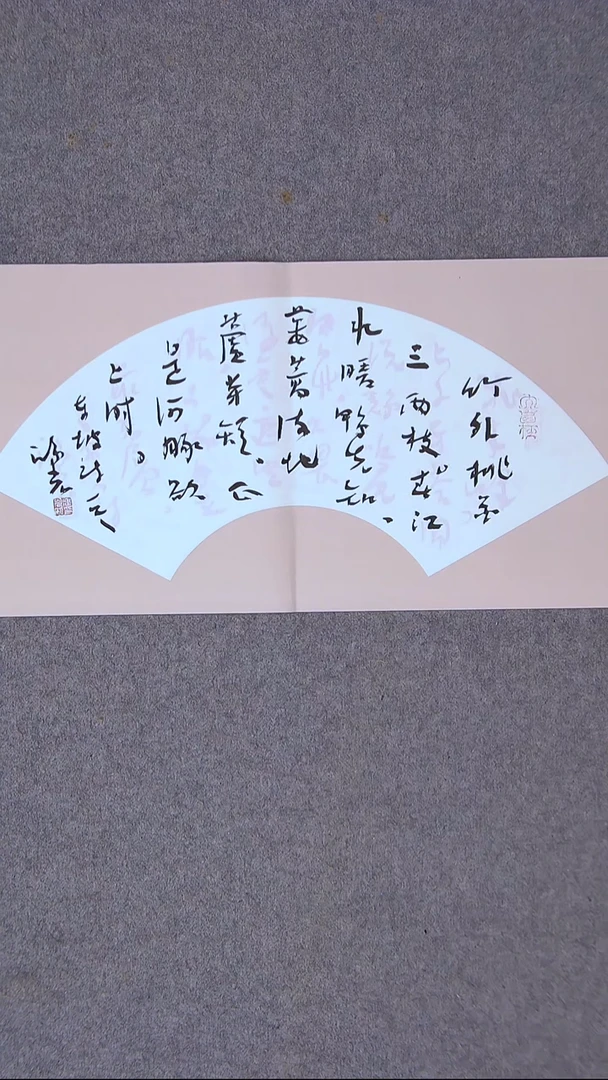 竹外桃花
三两枝春江
水暖鸭先知
蒌蒿满地
芦芽短正
是河豚欲
上时
东坡诗意